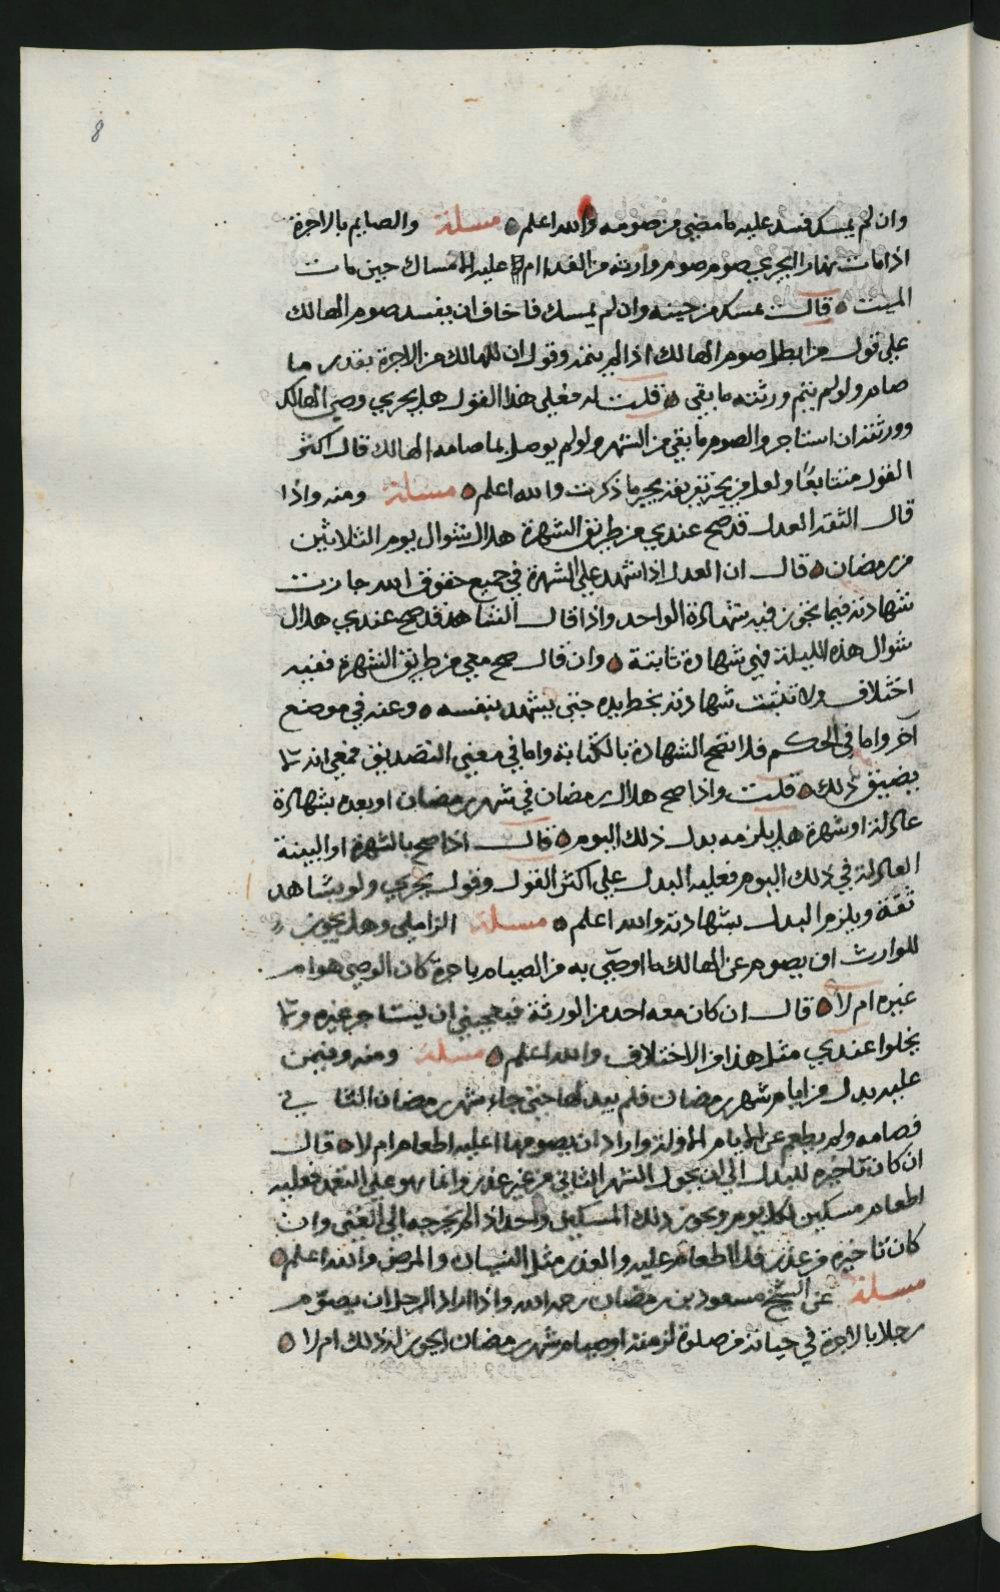 8
وان لم يمسك فسد عليه ما مضى من صومه والله اعلم ٥ مسلة والصايم بالاجرة
اذا مات نهارا ايجزي صوم وارثه من الغد ام عليه الامساك حين مات
الميت ٥ قال يمسك من حينه وان لم يمسك فاخاف ان يفسد صوم الهالك
على قول من ابطل صوم الهالك اذا لم يتمه وقول ان للهالك من الاجرة بقدر ما
صام ولو لم يتم ورثته ما بقى ٥ قلت له فعلى هذا القول هل يجزي وصي الهالك
وورثته ان استاجروا لصوم ما بقي من الشهر ولو لم يوصل بما صامه الهالك قال اكثر
القول متتابعًا ولعل من يجيز تفريقه يجيز ما ذكرت والله اعلم ٥ مسلة ومنه واذا
قال الثقة العدل قد صح عندي من طريق الشهرة هلال شوال يوم الثلاثين
من رمضان ٥ قال ان العدل اذا شهد على الشهرة في جميع حقوق الله جازت
شهادته فيما تجوز فيه شهادة الواحد واذا قال الشاهد قد صح عندي هلال
شوال هذه الليلة فهي شهادة ثابتة ٥ وان قال صح معي من طريق الشهرة ففيه
اختلاف ولا تثبت شهادته بخط يده حتى يشهد بنفسه ٥ وعنه في موضع
آخر واما في الحكم فلا تصح الشهادة بالكتابة واما في معنى التصديق فمعي انه لا
يضيق ذلك ٥ قلت واذا صح هلال رمضان في شهر رمضان او بعده بشهادة
عادلة او شهرة هل يلزمه بدل ذلك اليوم ٥ قال اذا صح بالشهرة او البينة
العادلة في ذلك اليوم فعليه البدل على اكثر القول وقول يجزي ولو بشاهد
ثقة ويلزم البدل بشهادته والله اعلم ٥ مسلة الزاملي وهل يجوز
للوارث ان يصوم عن الهالك ما اوصى به من الصيام باجرة كان الوصي هو ام
غيره ام لا ٥ قال ان كان معه احد من الورثة فيعجبني ان يستاجر غيره ولا
يخلوا عندي مثل هذا من الاختلاف والله اعلم ٥ مسلة ومنه وفيمن
عليه بدل من ايام شهر رمضان فلم يبدلها حتى جاء شهر رمضان الثاني
فصامه ولم يطعم عن الايام الاولة واراد ان يصومها اعليه اطعام ام لا ٥ قال
ان كان تاخيره للبدل الى ان يحول الشهر الثاني من غير عذر وانما هو على التعمد فعليه
اطعام مسكين لكل يوم ويجوز ذلك المسكين واحدا اذا لم يخرجه الى الغنى وان
كان تاخيره من عذر فلا اطعام عليه والعذر مثل النسيان والمرض والله اعلم ٥
مسلة عن الشيخ مسعود بن رمضان رحمه الله واذا اراد الرجل ان يصوّم
رجلا بالاجرة في حياته من صلوة لزمته او صيام شهر رمضان ايجوز له ذلك ام لا ٥